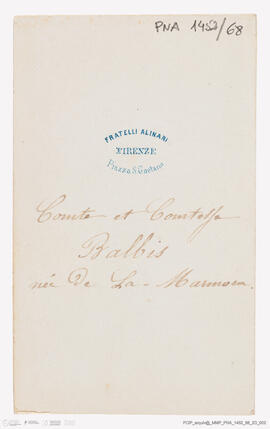 PNA 1452/68
FRATELLI ALINARI
FIRENZE
Piazza S. Gaetano
Comte et Comtesse
Balbis
née de La-Marmora.